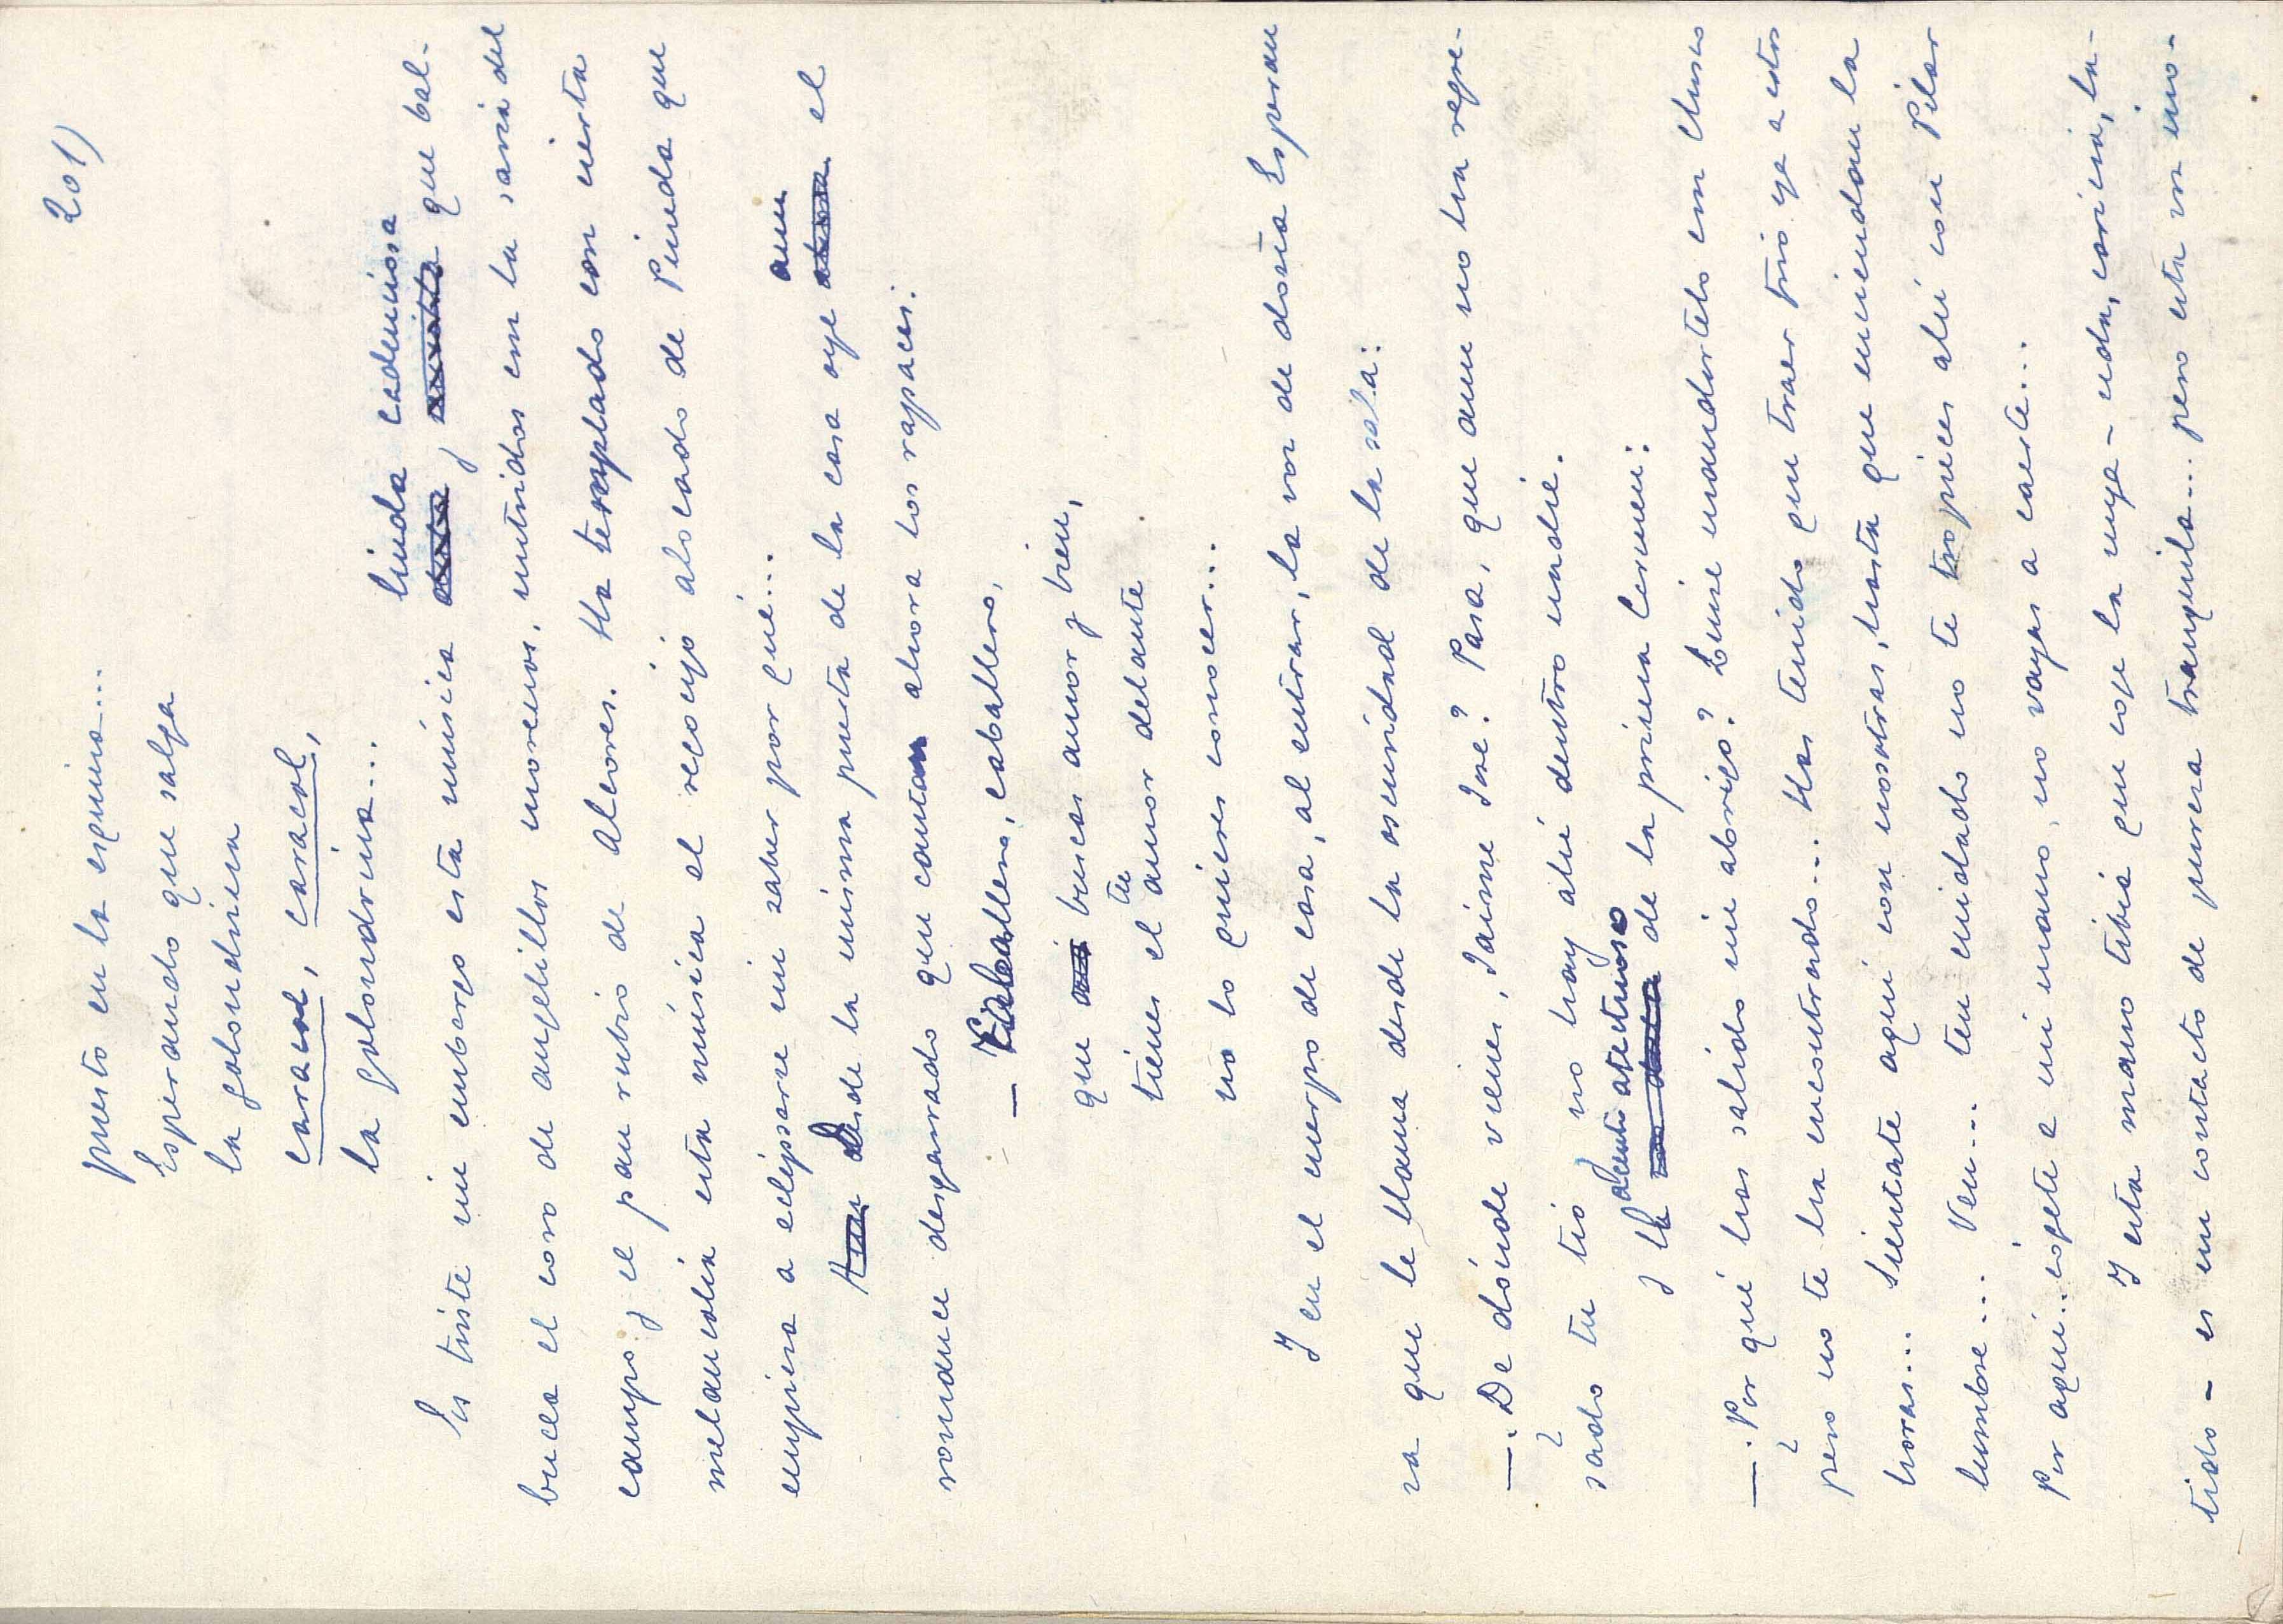 201)
puesto en la esquina...
Esperando que salga
la golondrina
caracol, caracol,
la golondrina...
Es triste sin embargo esta música linda y cadenciosa que bal-
bucea el coro de angelillos morenos, nutridos con la savia del
campo y el pan rubio de Alcores. Ha templado con cierta
melancolía esta música el regocijo alocado de Pineda que
empieza a eclipsarse sin saber por qué...
Desde la misma puerta de la casa oye aun el
romance desgarrado que cantan ahora los rapaces:
— Caballero, caballero,
que buscas amor y bien,
tienes el amor delante
tu
no lo quieres conocer...
Y en el cuerpo de casa, al entrar, la voz de doña Esperan
za que le llama desde la oscuridad de la sala:
—¿De dónde vienes, Jaime José? Pasa, que aun no ha regre-
sado tu tío y no hay ahí dentro nadie.
y la acento afectuoso de la prima Carmen:
—¿Por qué has salido sin abrigo? Quise mandártelo con Chusco
pero no te ha encontrado... Has tenido que traer frío ya a estas
horas... Siéntate aquí con nosotras, hasta que enciendan la
lumbre... Ven... ten cuidado no te tropieces ahí con Pilar
Por aquí... cógete a mi mano, no vayas a caerte...
Y esta mano tibia que coge la suya - seda, caricia, la-
tido - es un contacto de pureza tranquila... pero esta vez ino-